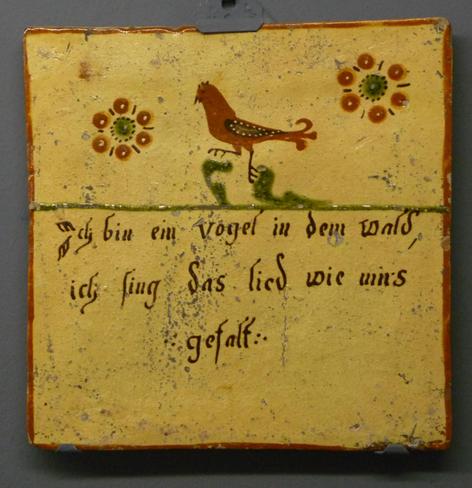 Ich bin ein vogel in dem wald,
ich sing das lied wie mirs
gefalt